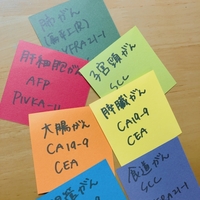 肺がん
YFRA21-1
肝細胞がん
AFP
PIVKA-
子宮頸がん
SCC
膵臓がん
CA19-9
CEA
大腸がん
CA19-9
CEA
食道がん
SCC